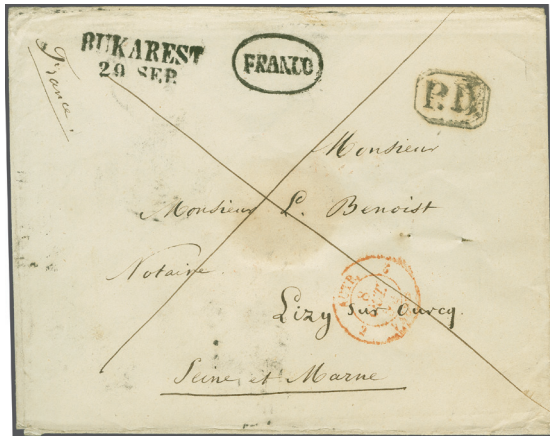 BUKAREST
29 SEP.
FRANCO
P.D.
France.
Monsieur
Monsieur L. Benoist
Notaire
Lizy sur Ourcq.
Seine et Marne
AUTR.
2